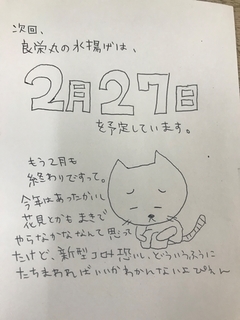 次回、
良栄丸の水揚げは、
2月27日
を予定しています。
もう2月も
終わりですって。
今年はあったかいし
花見とかもまきで
やらなかななんて思って
たけど、新型コロナ恐いし、どういうふうに
たちまわればいいかわかんないよぴえん